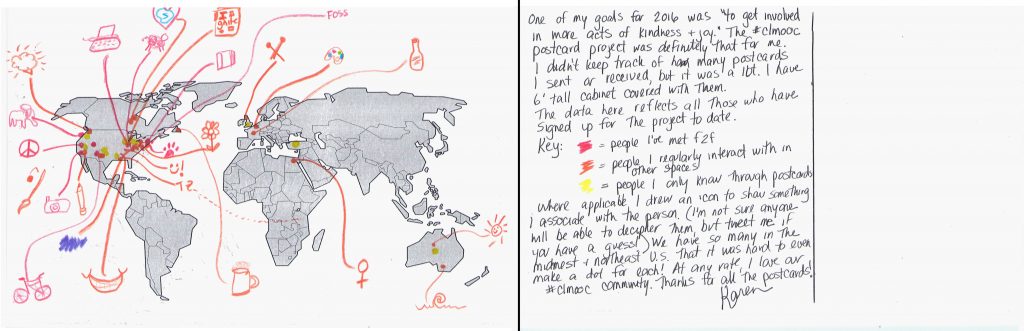 FOSS
Ignite
S
T2
One of my goals for 2016 was "to get involved
in more acts of kindness + joy." The #clmooc
postcard project was definitely that for me.
I didn't keep track of how many postcards
I sent or received, but it was a lot. I have
6' tall cabinet covered with them.
The data here reflects all those who have
signed up for the project to date.
Key: = people I've met f2f
= people I regularly interact with in
other spaces
= people I only know through postcards
Where applicable I drew an icon to show something
I associate with the person. (I'm not sure anyone
will be able to decipher them, but tweet me if
you have a guess!) We have so many in the
midwest + northeast U.S. that it was hard to even
make a dot for each! At any rate I love our
#clmooc community. Thanks for all the postcards!
Karen